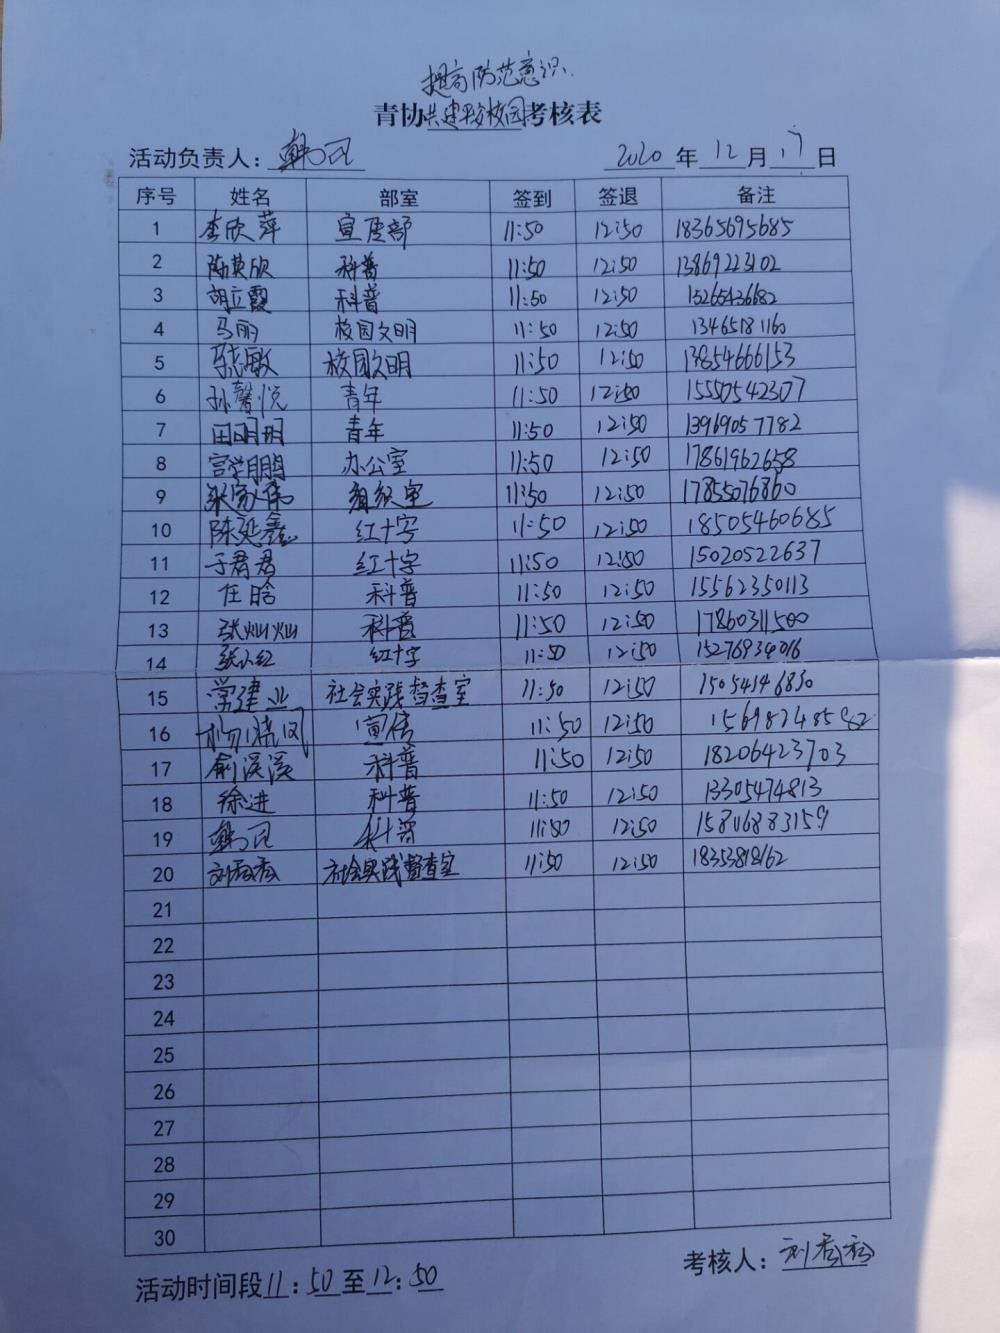 提高防范意识
青协共建平安校园考核表
活动负责人： 2020年12月17日
序号 姓名 部室 签到 签退 备注
1 李欣萍 宣传部 11:50 12:50 18365695685
2 陈英欣 科普 11:50 12:50 13869223102
3 胡立霞 科普 11:50 12:50 15265436682
4 马丽 校园文明 11:50 12:50 13465181160
5 校园文明 11:50 12:50 13854666153
6 孙馨悦 青年 11:50 12:50 15550542307
7 田明玥 青年 11:50 12:50 13969057782
8 宫学鹏 办公室 11:50 12:50 17861962658
9 11:50 12:50 17855076860
10 陈延鑫 红十字 11:50 12:50 18505460685
11 于君君 红十字 11:50 12:50 15020522637
12 任晗 科普 11:50 12:50 15562350113
13 张灿灿 科普 11:50 12:50 17860311500
14 张小红 红十字 11:50 12:50 15276934016
15 常建业 社会实践督查室 11:50 12:50 15054146830
16 杨晓凤 宣传 11:50 12:50 15698248582
17 俞溪溪 科普 11:50 12:50 18206423703
18 徐进 科普 11:50 12:50 13305474813
19 科普 11:50 12:50 15806883159
20 刘香香 社会实践督查室 11:50 12:50 18353818162
21
22
23
24
25
26
27
28
29
30
考核人：刘香香
活动时间段11:50至12:50